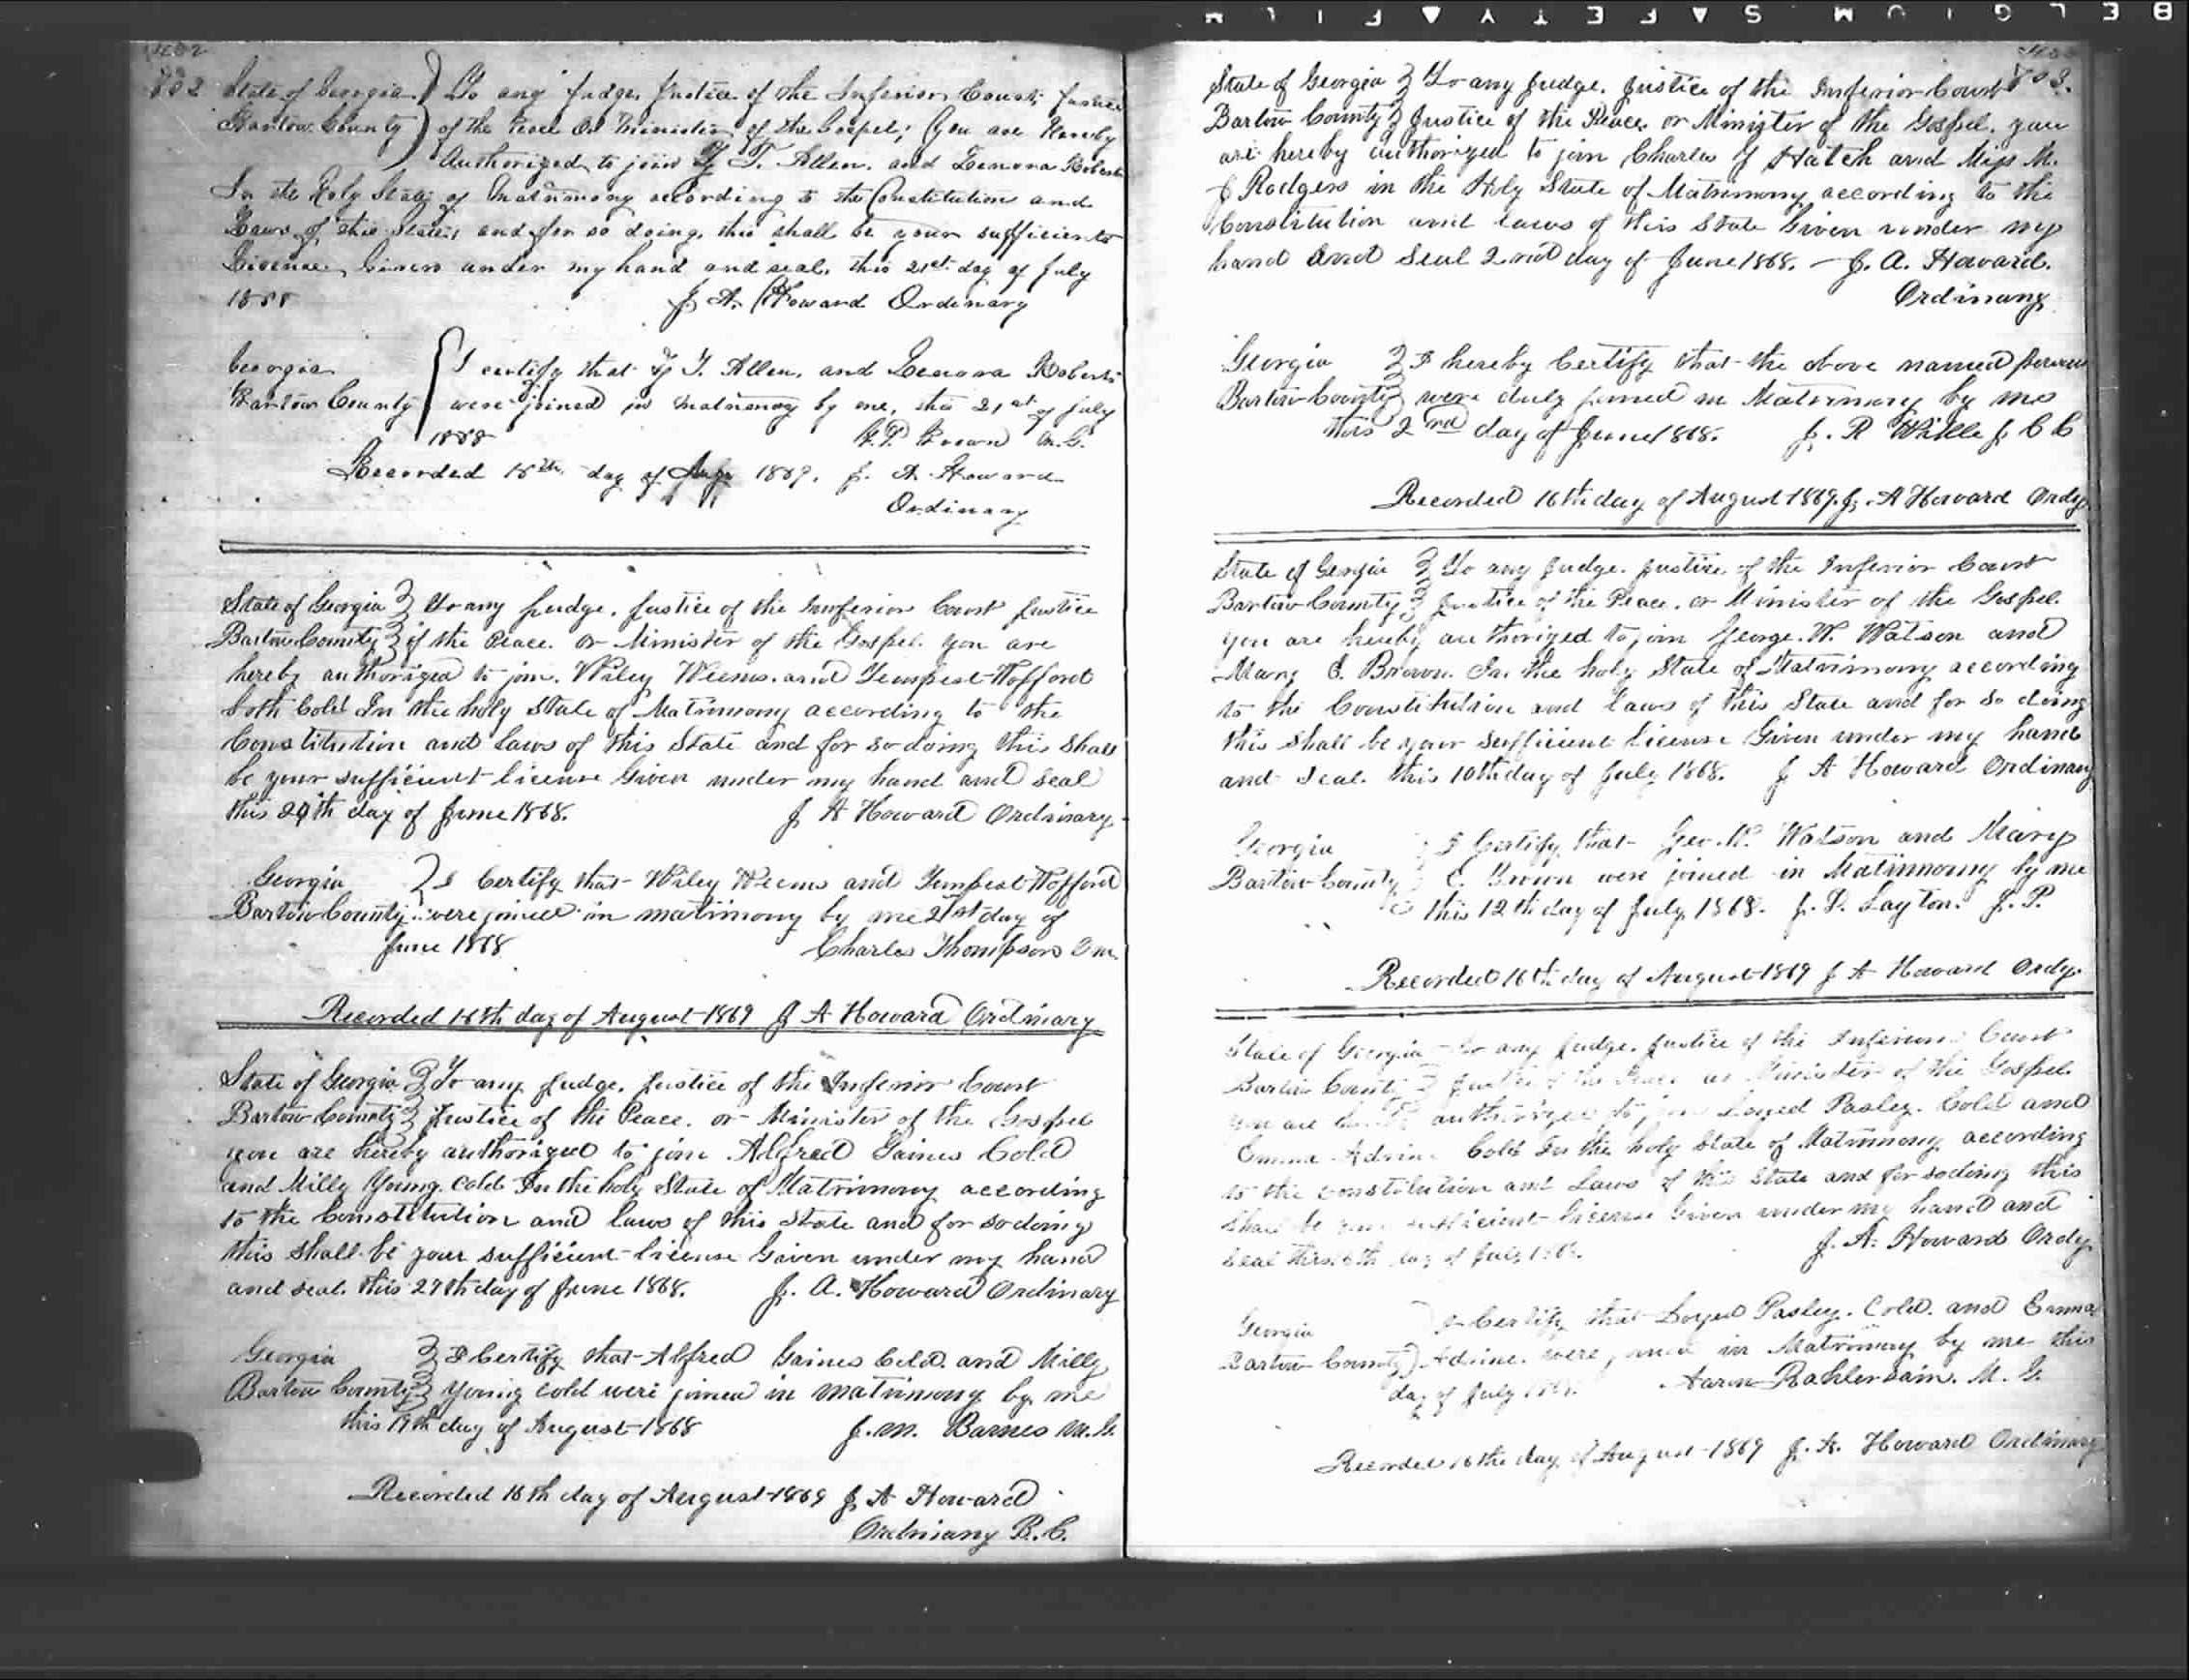 802
State of Georgia) To any Judge, Justice of the Inferior Court, Justice
Bartow County) of the Peace Or Minister of the Gospel; (you are Hereby
Authorized, to join T. Allen, and Lenora Roberts
In the Holy State of Matrimony according to the Constitution and
Laws of this State, and for so doing, this shall be your sufficient
License, Given under my hand and seal, this 21st day of July
J. A. Howard Ordinary
Georgia
I certify that T. Allen, and Lenora Roberts
Bartow County were joined in matrimony by me, this 21st of July
Brown M.G.
Recorded 15th day of Augt 1869, J. A. Howard
Ordinary
State of Georgia } To any Judge, Justice of the Inferior Court Justice
Bartow County } of the Peace. or Minister of the Gospel. you are
hereby authorized to join. Wiley Weems. and Tempest Wofford
both Cold In the holy State of Matrimony according to the
Constitution and laws of this State and for so doing this shall
be your sufficient license Given under my hand and seal
this 20th day of June 1868. J A Howard Ordinary
Georgia } I Certify that Wiley Weems and Tempest Wofford
Bartow County were joined in matrimony by me 21st day of
June 1868 Charles Thompson
Recorded 16th day of August 1869 J A Howard Ordinary
State of Georgia } To any Judge, Justice of the Inferior Court
Bartow County } Justice of the Peace. or Minister of the Gospel
you are hereby authorized to join Alfred Gaines Cold
and Milly Young. Cold In the holy State of Matrimony according
to the Constitution and laws of this State and for so doing
this shall be your sufficient license Given under my hand
and seal. this 27th day of June 1868. J. A. Howard Ordinary
Georgia } I Certify that Alfred Gaines Cold. and Milly
Bartow County } Young cold were joined in matrimony by me
this 19th day of August 1868 J. M. Barnes M.G.
Recorded 16th day of August 1869 J A Howard
Ordinary B. C.
803.
State of Georgia } To any Judge. Justice of the Inferior Court
Bartow County } Justice of the Peace, or Minister of the Gospel. you
are hereby authorized to join Charles J Hatch and Miss M.
J Rodgers in the Holy State of Matrimony according to the
Constitution and laws of this State Given under my
hand and Seal 2nd day of June 1868. J. A. Howard.
Ordinary
Georgia } I hereby Certify that the above named
Bartow County } were duly joined in Matrimony by me
this 2nd day of June 1868. J. R J C C
Recorded 16th day of August 1869. J. A Howard Ordy
State of Georgia } To any Judge. Justice, of the Inferior Court
Bartow County } Justice of the Peace. or Minister of the Gospel.
you are hereby authorized to join George. W. Watson and
Mary E. Brown. In the holy State of Matrimony according
to the Constitution and laws of this State and for so doing
this shall be your sufficient license Given under my hand
and Seal. this 10th day of July 1868. J A Howard Ordinary
Georgia } I Certify that Geo. W. Watson and Mary
Bartow County } E. Brown were joined in Matrimony by me
this 12th day of July, 1868. Layton. J. P.
Recorded 16th day of August 1869 J A Howard Ordy.
State of Georgia To any Judge. Justice of the Inferior Court
Bartow County } Justice of the Peace or Minister of the Gospel.
you are authorized to join Loyed Pasley. Cold and
Emma Adrine Cold In the holy State of Matrimony according
to the constitution and Laws of this State and for so doing this
shall be your sufficient license Given under my hand and
seal this 6th day of July J. A. Howard Ordy
Georgia I Certify that Loyed Pasley. Cold. and Emma
Bartow County) Adrine. were joined in Matrimony by me this
day of July Aaron M. G.
Recorded 16th day of August 1869 J. A. Howard Ordinary